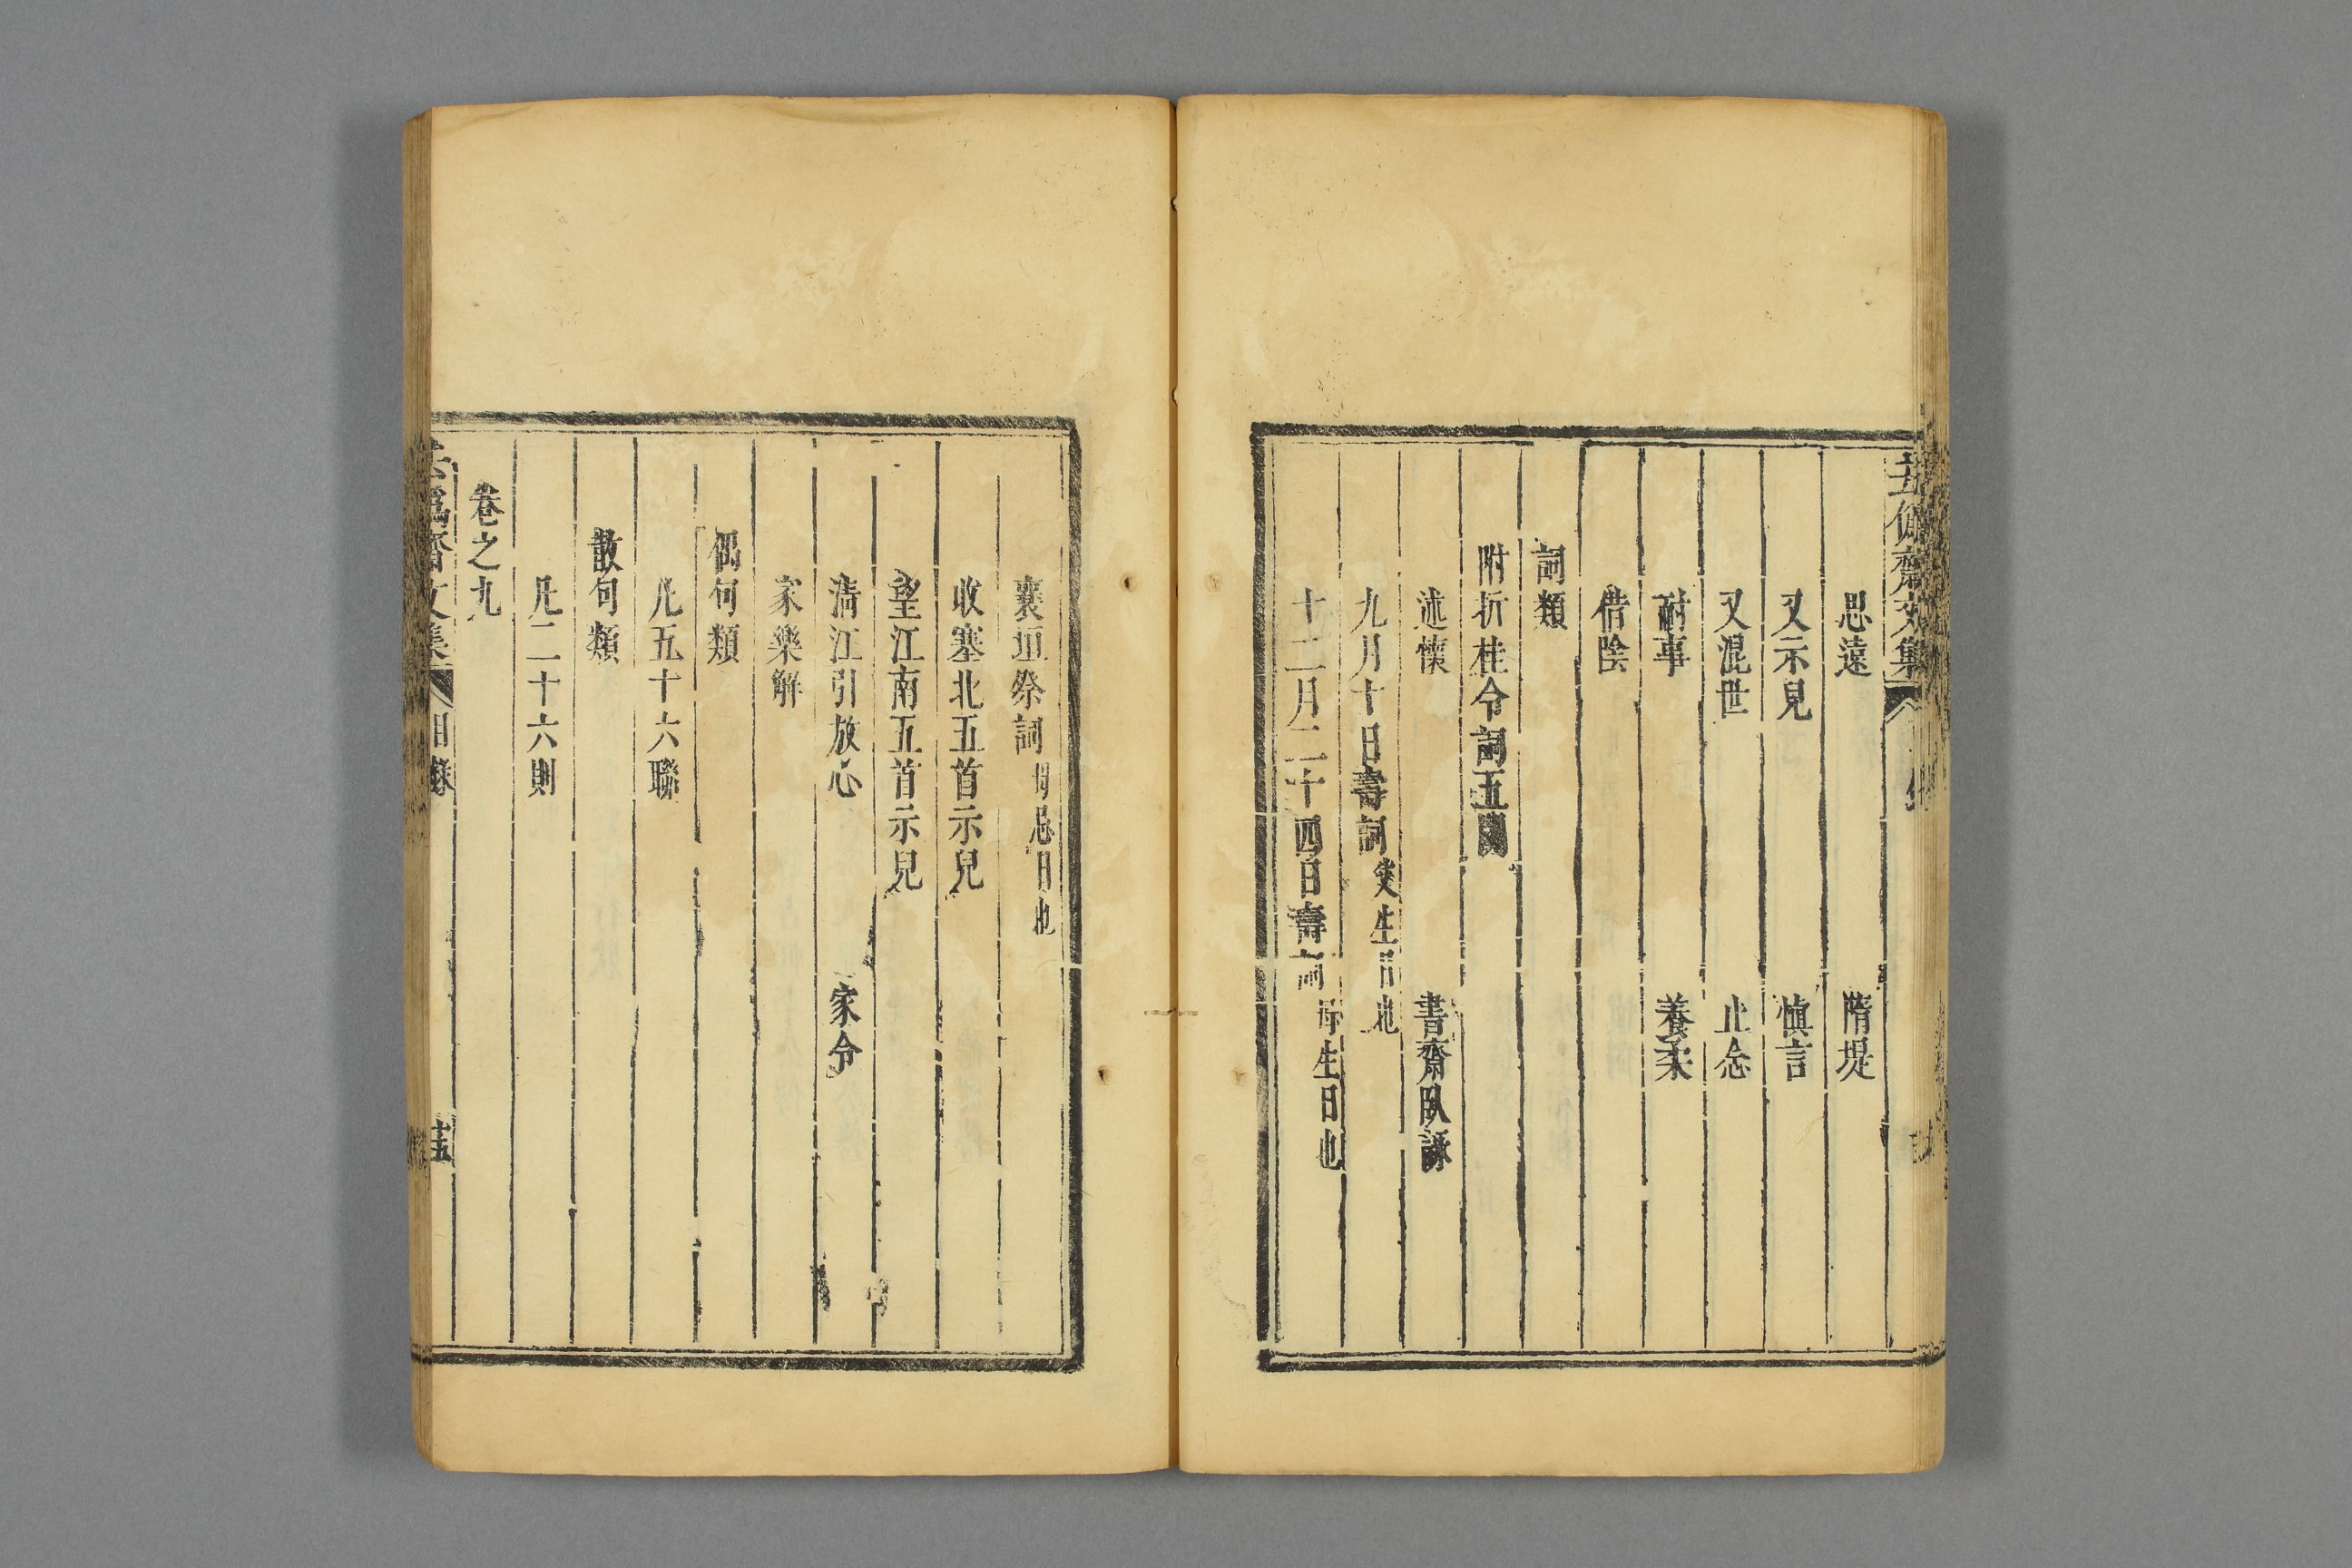 思遠　隋堤
又示兒　慎言
又混世　止念
耐事　養柔
惜陰
詞類
附折桂令詞五
述懷　書齋臥詠
九月十日壽詞　父生日也
十二月二十四日壽詞　母生日也
襄垣祭詞　母忌日也
收塞北五首示兒
望江南五首示兒
清江引放心　家令
家樂解
偶句類
凡五十六聯
散句類
凡二十六則
卷之九
齋文集　目錄